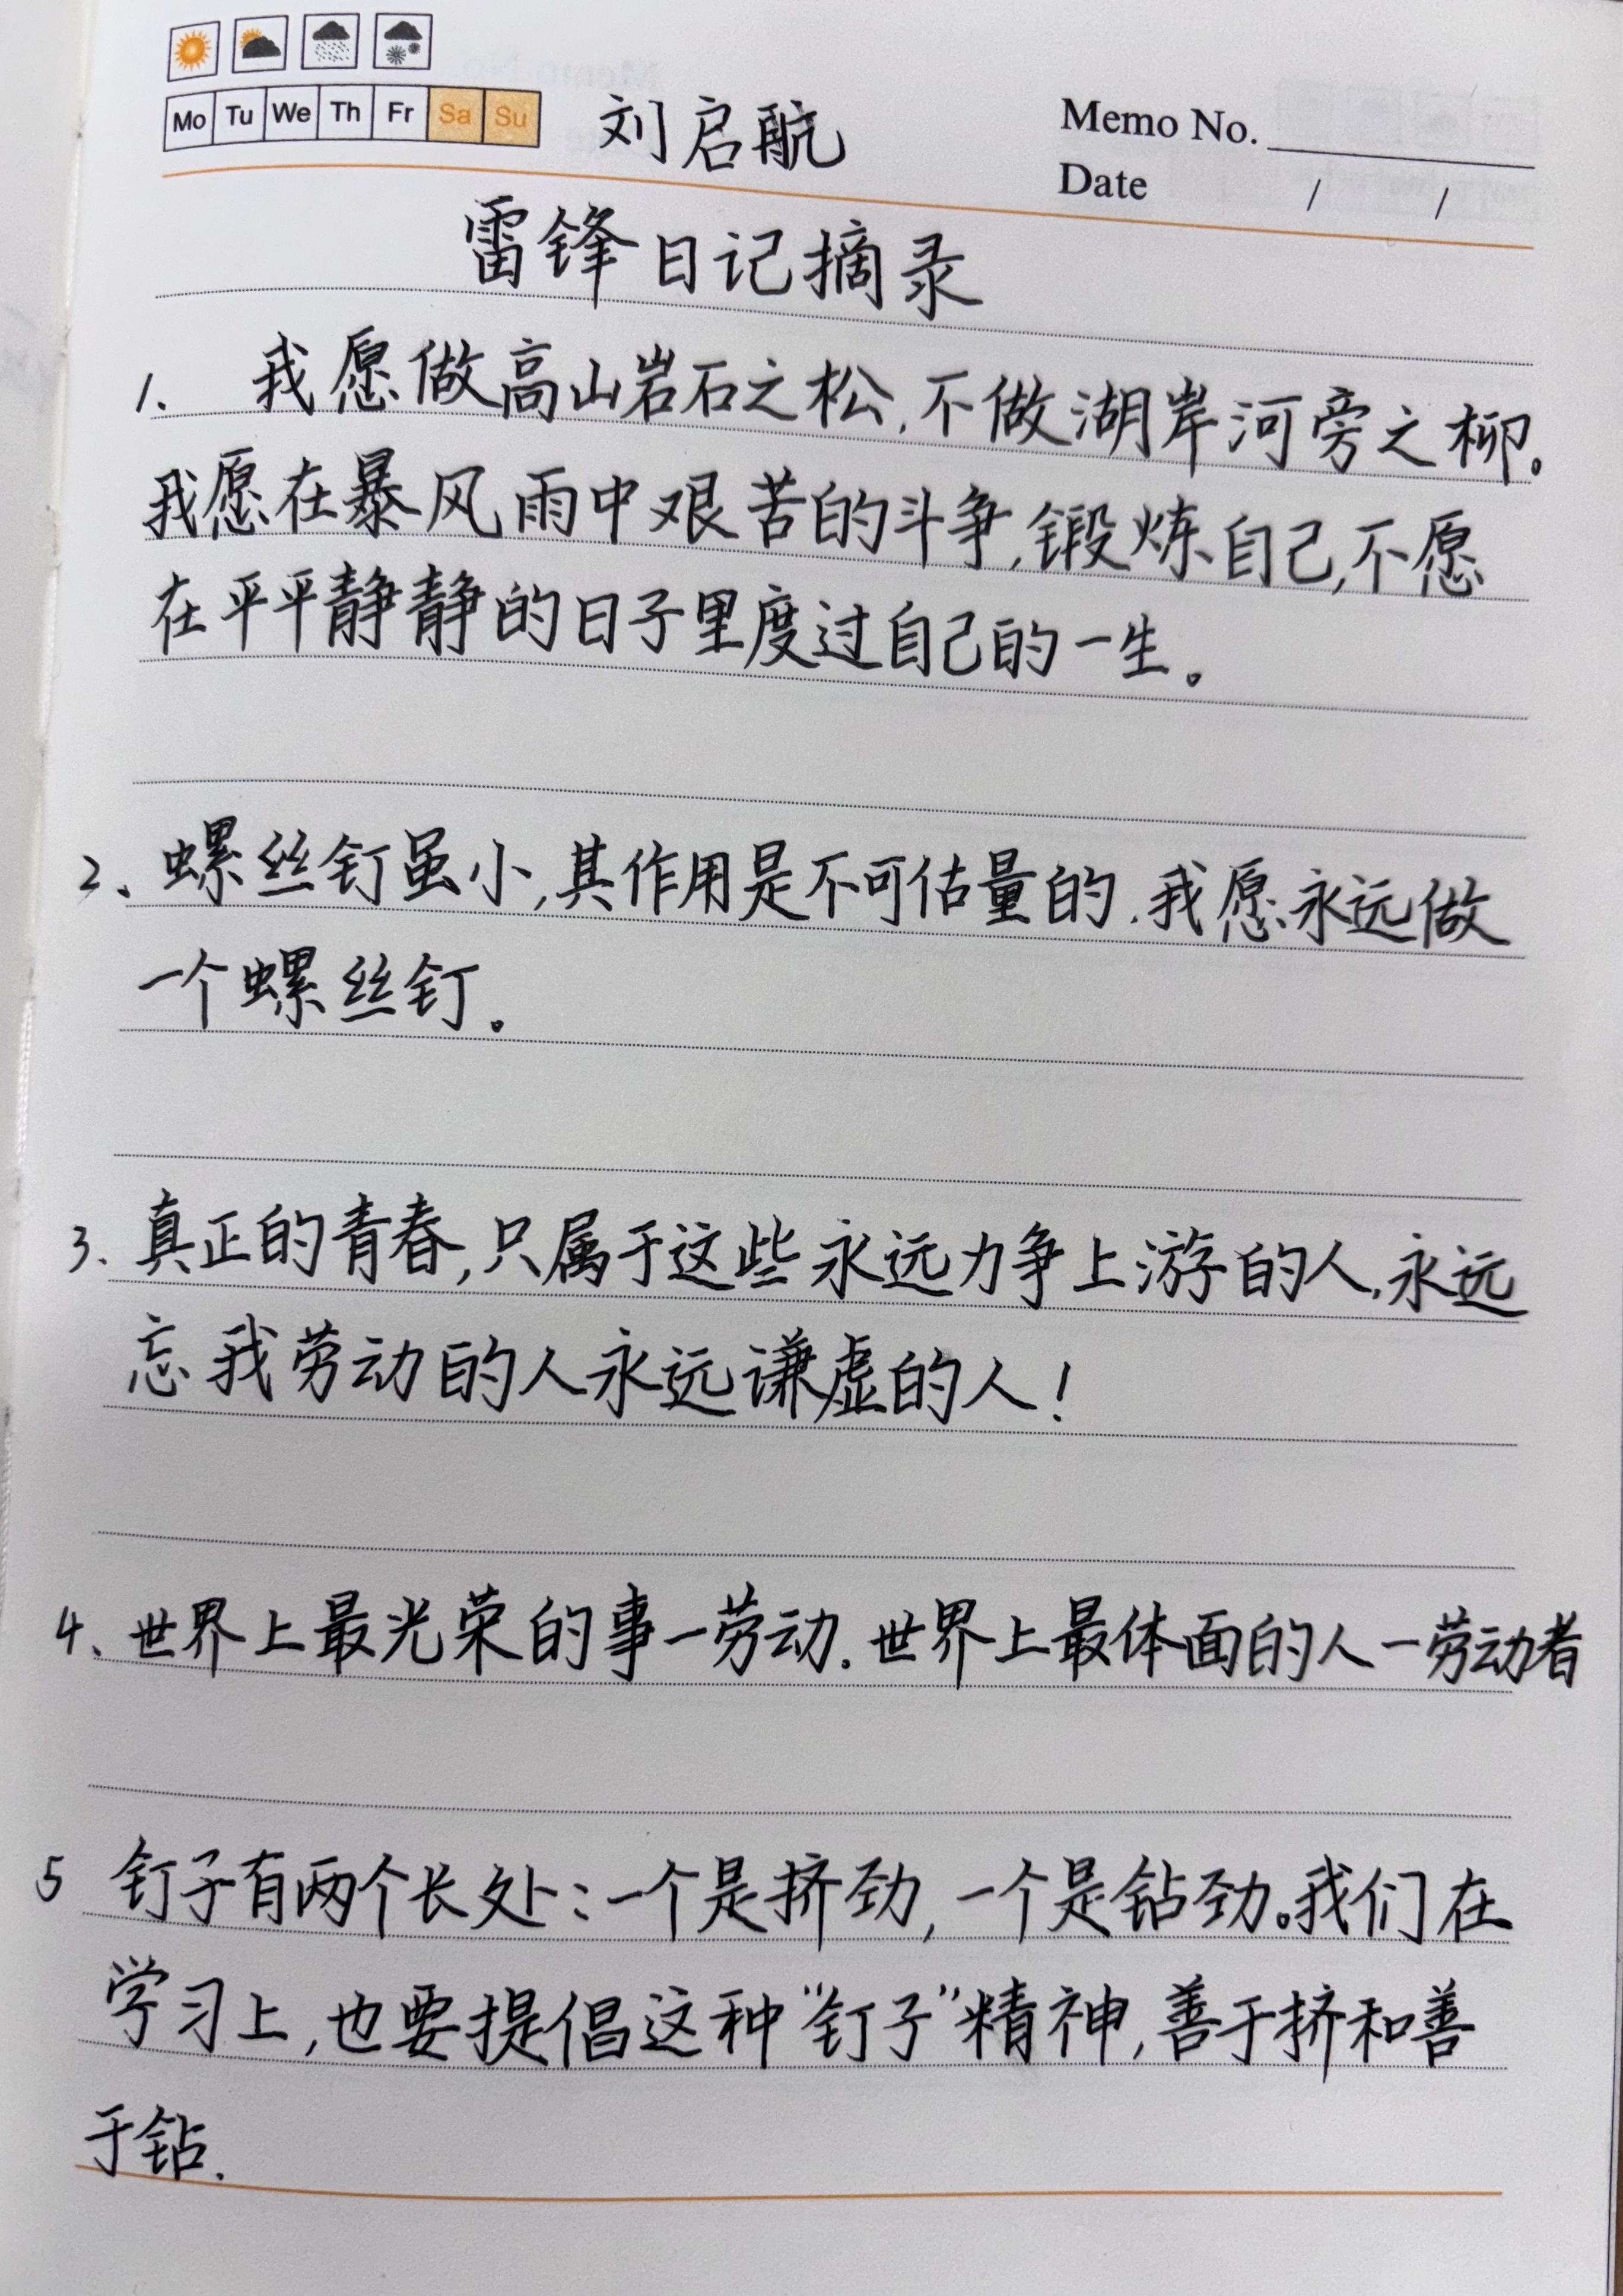 Mo Tu We Th Fr Sa Su
刘启航
Memo No.
Date / /
雷锋日记摘录
1. 我愿做高山岩石之松,不做湖岸河旁之柳。
我愿在暴风雨中艰苦的斗争,锻炼自己,不愿
在平平静静的日子里度过自己的一生。
2、螺丝钉虽小,其作用是不可估量的.我愿永远做
一个螺丝钉。
3. 真正的青春,只属于这些永远力争上游的人,永远
忘我劳动的人永远谦虚的人!
4、世界上最光荣的事一劳动.世界上最体面的人一劳动者
5 钉子有两个长处:一个是挤劲,一个是钻劲。我们在
学习上,也要提倡这种“钉子”精神,善于挤和善
于钻.